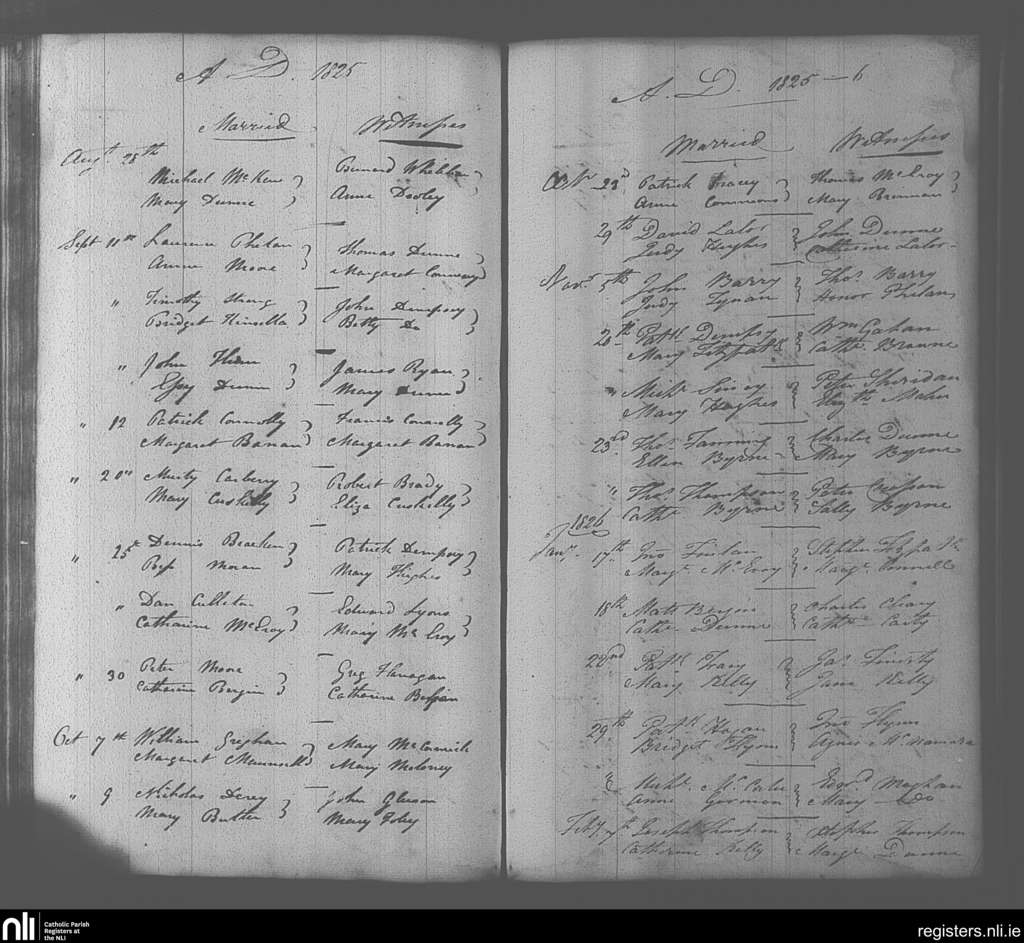 A. D. 1825
Married Witnesses
Augt. 28th
Michael McKew Bernard Whelehan
Mary Dunne Anne Dooley
Sept 11th Laurence Phelan Thomas Dunne
Anne Moore Margaret Conway
" Timothy Strong John Dempsey
Bridget Kinsella Betty Do
" John James Ryan
Dunne Mary Dunne
" 12 Patrick Connolly Francis Connolly
Margaret Banan Margaret Banan
" 20th Murty Carberry Robert Brady
Mary Cuskelly Eliza Cuskelly
" 25th Dennis Bracken Patrick Dempsey
Bess Moran Mary Hughes
" Dan Culleton Edward Lyons
Catharine McEvoy Mary McEvoy
" 30 Peter Moore Greg Flanagan
Catharine Bergin Catharine Bergin
Oct 7th William Mary McCormick
Margaret Maunsell Mary Moloney
" 9 Nicholas John Gleeson
Mary Butler Mary Foley
A. D. 1825–6
Married Witnesses
Octr 23d Patrick Tracey Thomas McEvoy
Anne Commons Mary Brennan
29th David Lalor John Dunne
Judy Hughes Catherine Lalor
Novr 5th John Barry Thos. Barry
Judy Tynan Honor Phelan
20th Patk. Dempsey Wm Gahan
Mary Fitzpatk Cathe. Browne
" Michl Peter Sheridan
Mary Hughes Elizth Maher
23rd Thos. Fanning Charles Dunne
Ellen Byrne Mary Byrne
" Thos. Thompson Peter
Cathe Byrne Sally Byrne
1826
Jany. 17th Jno Stephen Fitzpatk
Margt. McEvoy Margt. Connell
18th Matt Bergin Charles Cleary
Cathe. Dunne Cathe Carty
22nd Patk Jas.
Mary Kelly Jane Kelly
29th Patk Hogan Jno Flynn
Bridget Flynn Agnes McNamara
" Michl. McCabe Edmd Meghan
Anne Gorman Mary Do
Feby. 7th Joseph Thompson Stephen Thompson
Catherine Kelly Margt Dunne
nli
Catholic Parish
Registers at
the NLI
registers.nli.ie